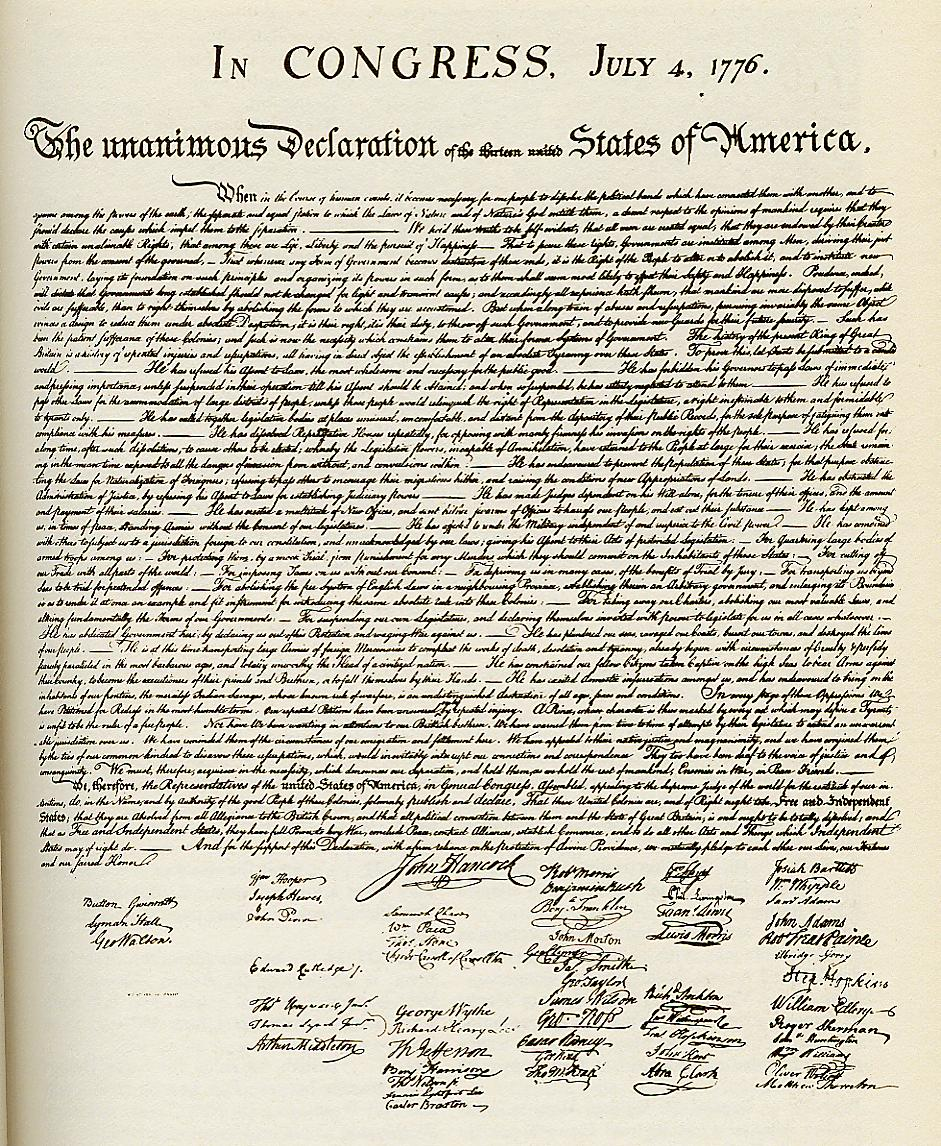 IN CONGRESS, JULY 4, 1776.
The unanimous Declaration of the thirteen united States of America.
When in the Course of human events, it becomes necessary for one people to dissolve the political bands which have connected them with another, and to
assume among the powers of the earth, the separate and equal station to which the Laws of Nature and of Nature's God entitle them, a decent respect to the opinions of mankind requires that they
should declare the causes which impel them to the separation. We hold these truths to be self-evident, that all men are created equal, that they are endowed by their Creator
with certain unalienable Rights, that among these are Life, Liberty and the pursuit of Happiness. — That to secure these rights, Governments are instituted among Men, deriving their just
powers from the consent of the governed, — That whenever any Form of Government becomes destructive of these ends, it is the Right of the People to alter or to abolish it, and to institute new
Government, laying its foundation on such principles and organizing its powers in such form, as to them shall seem most likely to effect their Safety and Happiness. Prudence, indeed,
will dictate that Governments long established should not be changed for light and transient causes; and accordingly all experience hath shewn, that mankind are more disposed to suffer, while
evils are sufferable, than to right themselves by abolishing the forms to which they are accustomed. But when a long train of abuses and usurpations, pursuing invariably the same Object
evinces a design to reduce them under absolute Despotism, it is their right, it is their duty, to throw off such Government, and to provide new Guards for their future security. — Such has
been the patient sufferance of these Colonies; and such is now the necessity which constrains them to alter their former Systems of Government. The history of the present King of Great
Britain is a history of repeated injuries and usurpations, all having in direct object the establishment of an absolute Tyranny over these States. To prove this, let Facts be submitted to a candid
world. He has refused his Assent to Laws, the most wholesome and necessary for the public good. He has forbidden his Governors to pass Laws of immediate
and pressing importance, unless suspended in their operation till his Assent should be obtained; and when so suspended, he has utterly neglected to attend to them. He has refused to
pass other Laws for the accommodation of large districts of people, unless those people would relinquish the right of Representation in the Legislature, a right inestimable to them and formidable
to tyrants only. He has called together legislative bodies at places unusual, uncomfortable, and distant from the depository of their public Records, for the sole purpose of fatiguing them into
compliance with his measures. He has dissolved Representative Houses repeatedly, for opposing with manly firmness his invasions on the rights of the people. He has refused for
a long time, after such dissolutions, to cause others to be elected; whereby the Legislative powers, incapable of Annihilation, have returned to the People at large for their exercise; the State remain-
ing in the mean time exposed to all the dangers of invasion from without, and convulsions within. He has endeavoured to prevent the population of these States; for that purpose obstruc-
ting the Laws for Naturalization of Foreigners; refusing to pass others to encourage their migrations hither, and raising the conditions of new Appropriations of Lands. He has obstructed the
Administration of Justice, by refusing his Assent to Laws for establishing Judiciary powers. He has made Judges dependent on his Will alone, for the tenure of their offices, and the amount
and payment of their salaries. He has erected a multitude of New Offices, and sent hither swarms of Officers to harrass our people, and eat out their substance. He has kept among
us, in times of peace, Standing Armies without the Consent of our legislatures. He has affected to render the Military independent of and superior to the Civil power. He has combined
with others to subject us to a jurisdiction foreign to our constitution, and unacknowledged by our laws; giving his Assent to their Acts of pretended Legislation: — For Quartering large bodies of
armed troops among us: — For protecting them, by a mock Trial, from punishment for any Murders which they should commit on the Inhabitants of these States: — For cutting off
our Trade with all parts of the world: — For imposing Taxes on us without our Consent: — For depriving us in many cases, of the benefits of Trial by Jury: — For transporting us beyond
Seas to be tried for pretended offences: — For abolishing the free System of English Laws in a neighbouring Province, establishing therein an Arbitrary government, and enlarging its Boundaries
so as to render it at once an example and fit instrument for introducing the same absolute rule into these Colonies: — For taking away our Charters, abolishing our most valuable Laws, and
altering fundamentally the Forms of our Governments: — For suspending our own Legislatures, and declaring themselves invested with power to legislate for us in all cases whatsoever. —
He has abdicated Government here, by declaring us out of his Protection and waging War against us. He has plundered our seas, ravaged our Coasts, burnt our towns, and destroyed the lives
of our people. He is at this time transporting large Armies of foreign Mercenaries to compleat the works of death, desolation and tyranny, already begun with circumstances of Cruelty & perfidy
scarcely paralleled in the most barbarous ages, and totally unworthy the Head of a civilized nation. He has constrained our fellow Citizens taken Captive on the high Seas to bear Arms against
their Country, to become the executioners of their friends and Brethren, or to fall themselves by their Hands. He has excited domestic insurrections amongst us, and has endeavoured to bring on the
inhabitants of our frontiers, the merciless Indian Savages, whose known rule of warfare, is an undistinguished destruction of all ages, sexes and conditions. In every stage of these Oppressions We
have Petitioned for Redress in the most humble terms: Our repeated Petitions have been answered by repeated injury. A Prince, whose character is thus marked by every act which may define a Tyrant,
is unfit to be the ruler of a free people. Nor have We been wanting in attentions to our British brethren. We have warned them from time to time of attempts by their legislature to extend an unwarrant-
able jurisdiction over us. We have reminded them of the circumstances of our emigration and settlement here. We have appealed to their native justice and magnanimity, and we have conjured them
by the ties of our common kindred to disavow these usurpations, which, would inevitably interrupt our connections and correspondence. They too have been deaf to the voice of justice and of
consanguinity. We must, therefore, acquiesce in the necessity, which denounces our Separation, and hold them, as we hold the rest of mankind, Enemies in War, in Peace Friends.
We, therefore, the Representatives of the united States of America, in General Congress, Assembled, appealing to the Supreme Judge of the world for the rectitude of our in-
tentions, do, in the Name, and by Authority of the good People of these Colonies, solemnly publish and declare, That these United Colonies are, and of Right ought to be Free and Independent
States; that they are Absolved from all Allegiance to the British Crown, and that all political connection between them and the State of Great Britain, is and ought to be totally dissolved; and
that as Free and Independent States, they have full Power to levy War, conclude Peace, contract Alliances, establish Commerce, and to do all other Acts and Things which Independent
States may of right do. And for the support of this Declaration, with a firm reliance on the protection of divine Providence, we mutually pledge to each other our Lives, our Fortunes
and our sacred Honor.
John Hancock
Button Gwinnett
Lyman Hall
Geo Walton.
Wm Hooper
Joseph Hewes,
John Penn
Edward Rutledge.
Thos Heyward Junr.
Thomas Lynch Junr.
Arthur Middleton
Samuel Chase
Wm Paca
Thos. Stone
Charles Carroll of Carrollton
George Wythe
Richard Henry Lee
Th Jefferson
Benj Harrison
Thos Nelson jr.
Francis Lightfoot Lee
Carter Braxton
Robt Morris
Benjamin Rush
Benja. Franklin
John Morton
Geo Clymer
Jas. Smith
Geo. Taylor
James Wilson
Geo. Ross
Caesar Rodney
Geo Read
Tho M:Kean
Wm Floyd
Phil. Livingston
Frans. Lewis
Lewis Morris
Richd. Stockton
Jno Witherspoon
Fras. Hopkinson
John Hart
Abra Clark
Josiah Bartlett
Wm: Whipple
Saml Adams
John Adams
Robt Treat Paine
Elbridge Gerry
Step. Hopkins
William Ellery
Roger Sherman
Saml Huntington
Wm Williams
Oliver Wolcott
Matthew Thornton